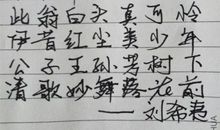 此翁白头真可怜
伊昔红尘美少年
公子王孙芳树下
清歌妙舞落花前
——刘希夷